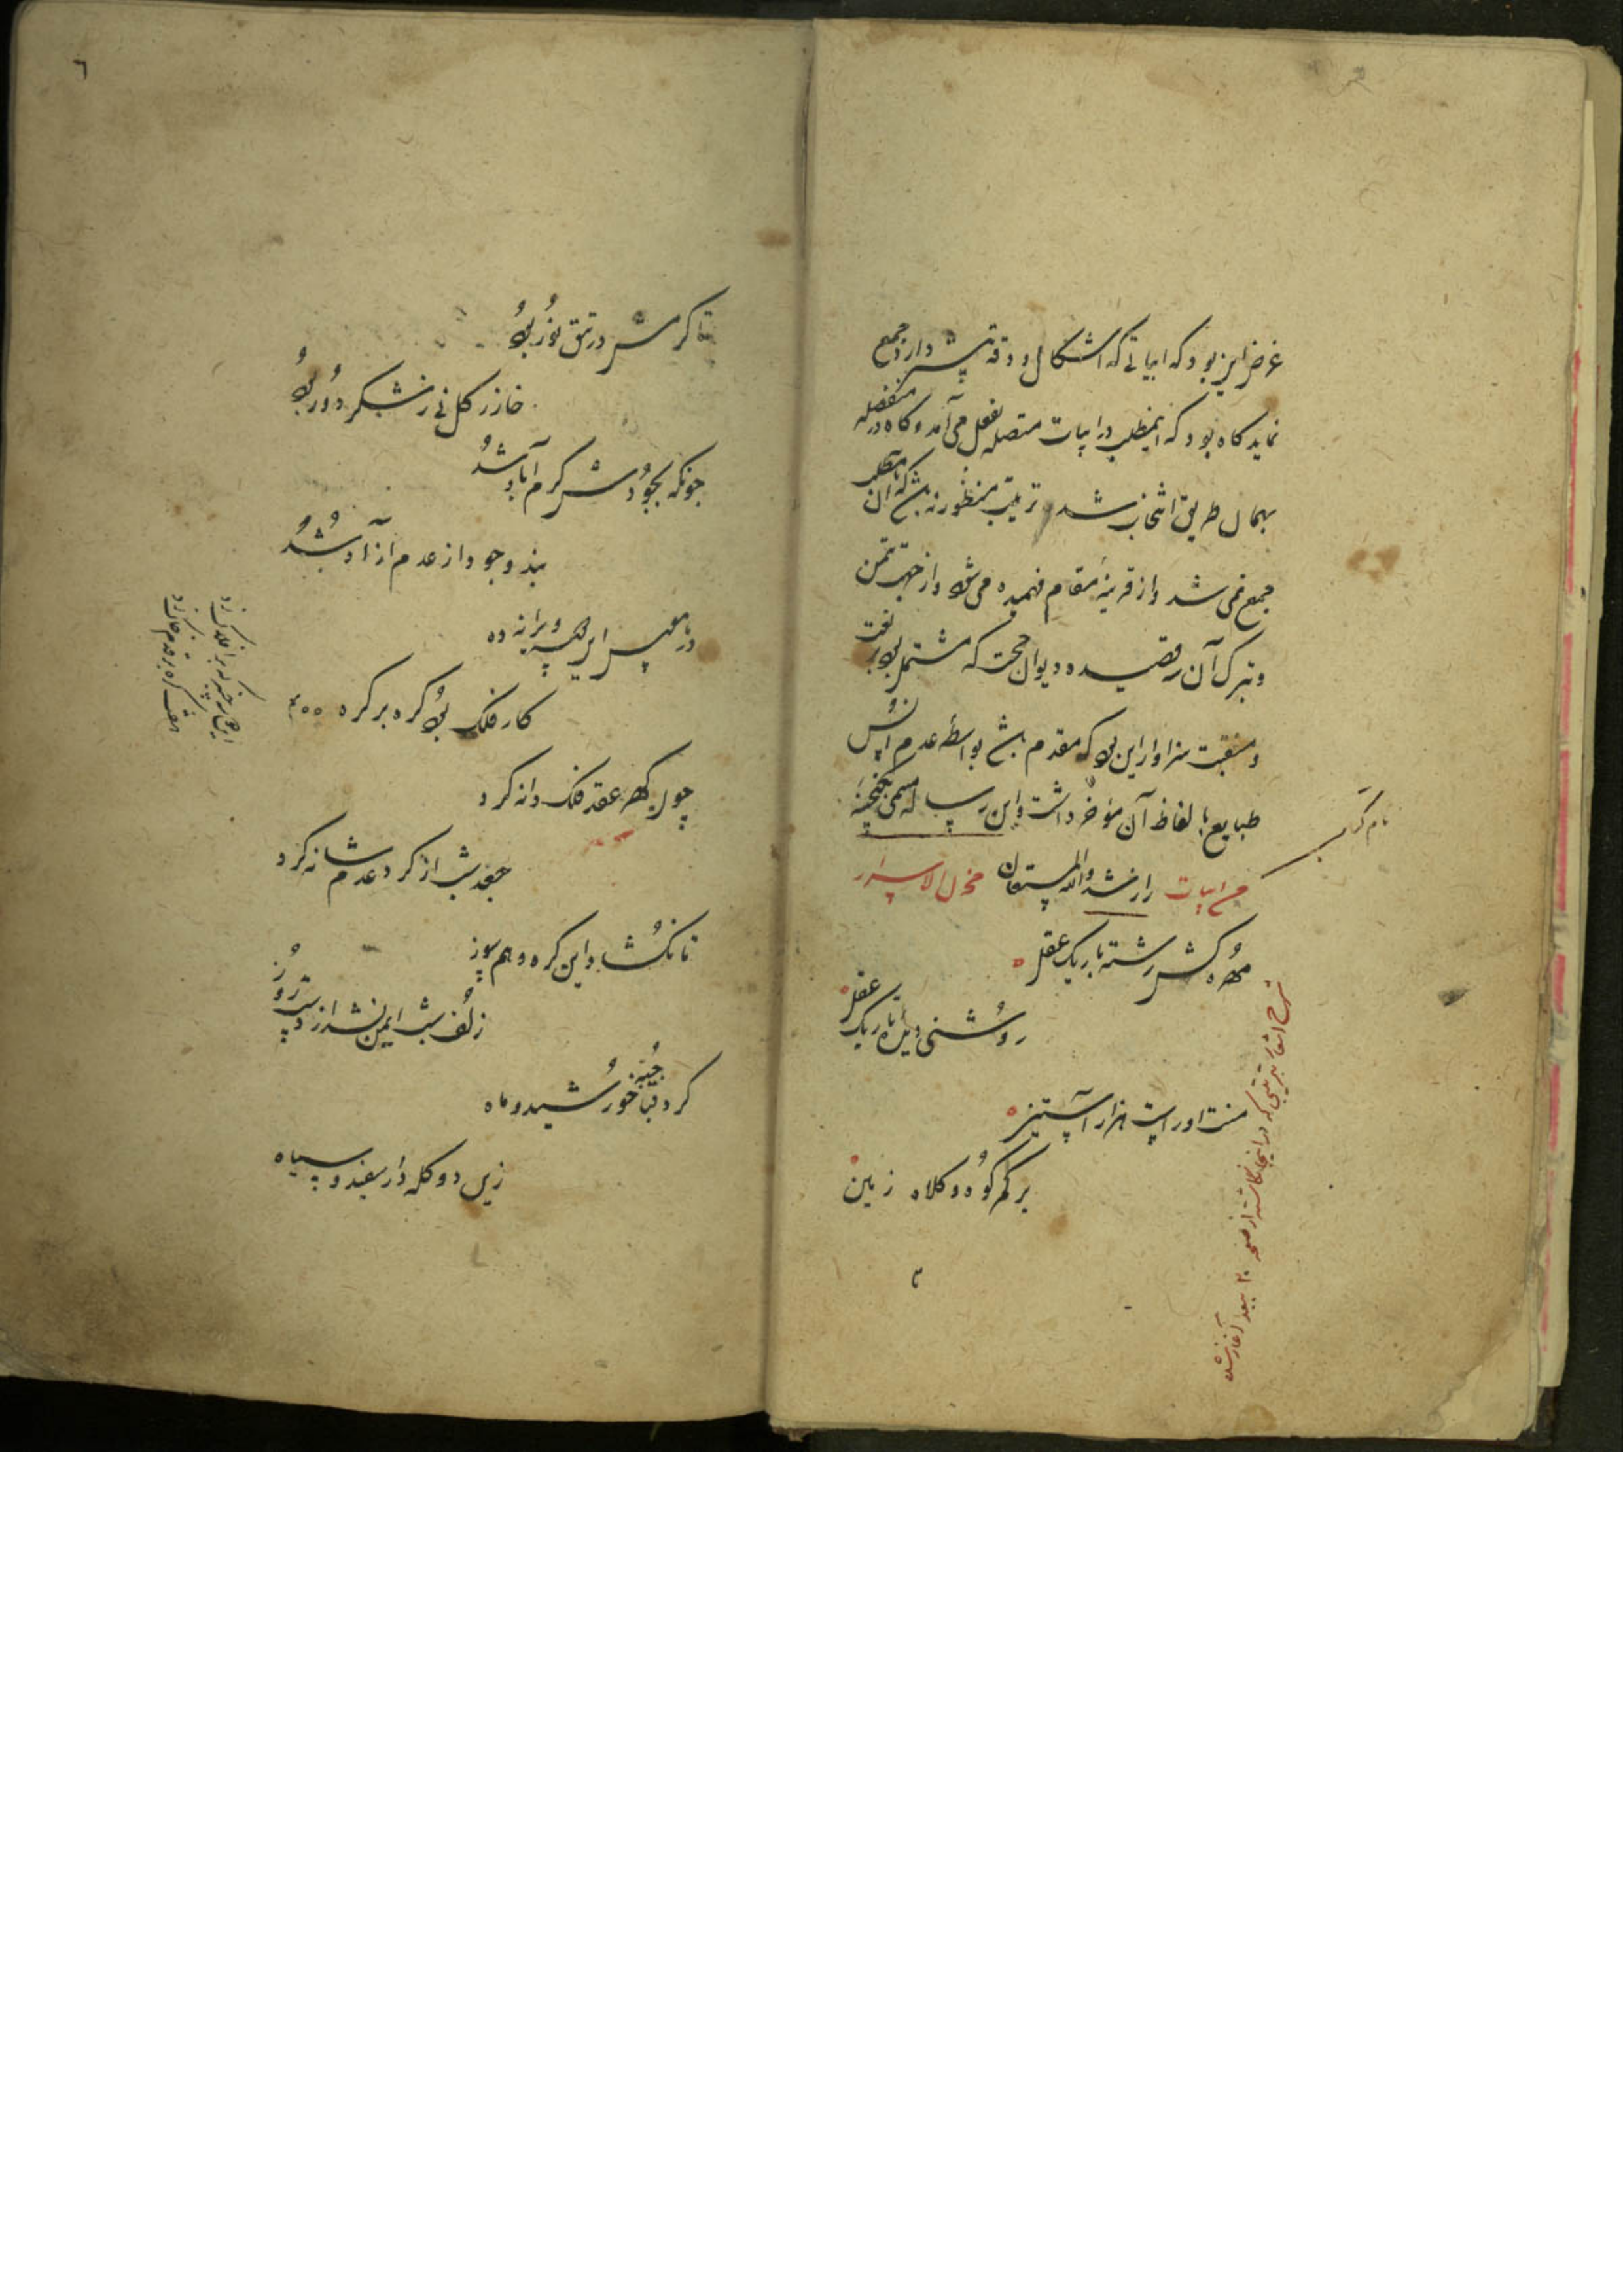 غرض این بود که ابیاتی که اشکال و دقه بیشتر دارد جمع
نماید کاه بود که اینمطلب در ابیات متصله بفعل می آمد و کاه در منفصله
بهمان طریق انتخاب شد و ترتیب منظور نه شد که آن مطلب
جمع نمی شد و از قرینهٔ مقام فهمیده می شود و از جهت تیمن
و تبرک آن قصیده دیوان حجت که مشتمل بود بر نعت
و منقبت سزاوار این بود که مقدم باشد بواسطهٔ عدم انس
طبایع با لفاظ آن مؤخر داشت و این رساله مسمی بکنجینهٔ
نام کتاب
را رشد والله المستعان مخزن الاسرار
مهره کش رشتهٔ باریک عقل
روشنی دیدهٔ تاریک عقل
منت او راست هزار آستین
بر کمر کوه و کلاه زمین
شرح اشعار بترتیبی که در اینجا نکاشته از صفحه ۲۰ ببعد آغاز شده
۳
٦
تا کرمش در تتق نور بود
خار ز کل نی ز شکر دور بود
چونکه بجودش کرم آباد شد
بند وجود از عدم آزاد شد
در هوس این دو سه ویرانه ده
کار فلک بود کره بر کره
چون کهر عقد فلک دانه کرد
جعد شب از کرد عدم شانه کرد
تا نکشاد این کره وهم سوز
زلف شب ایمن نشد از دست روز
کرد قبا جبهٔ خورشید و ماه
زین دو کله دار سفید و سیاه